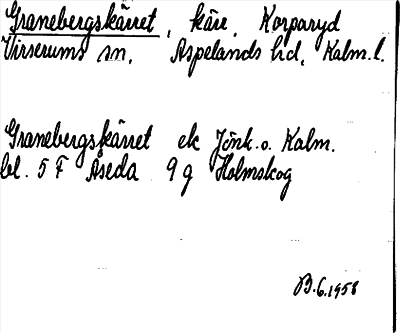 Granebergskärret, kärr, Korparyd
Virserums sn, Aspelands hd, Kalm. l.
Granebergskärret ek Jönk. o. Kalm.
bl. 5 F Åseda 9 g Holmskog
B. 6. 1958